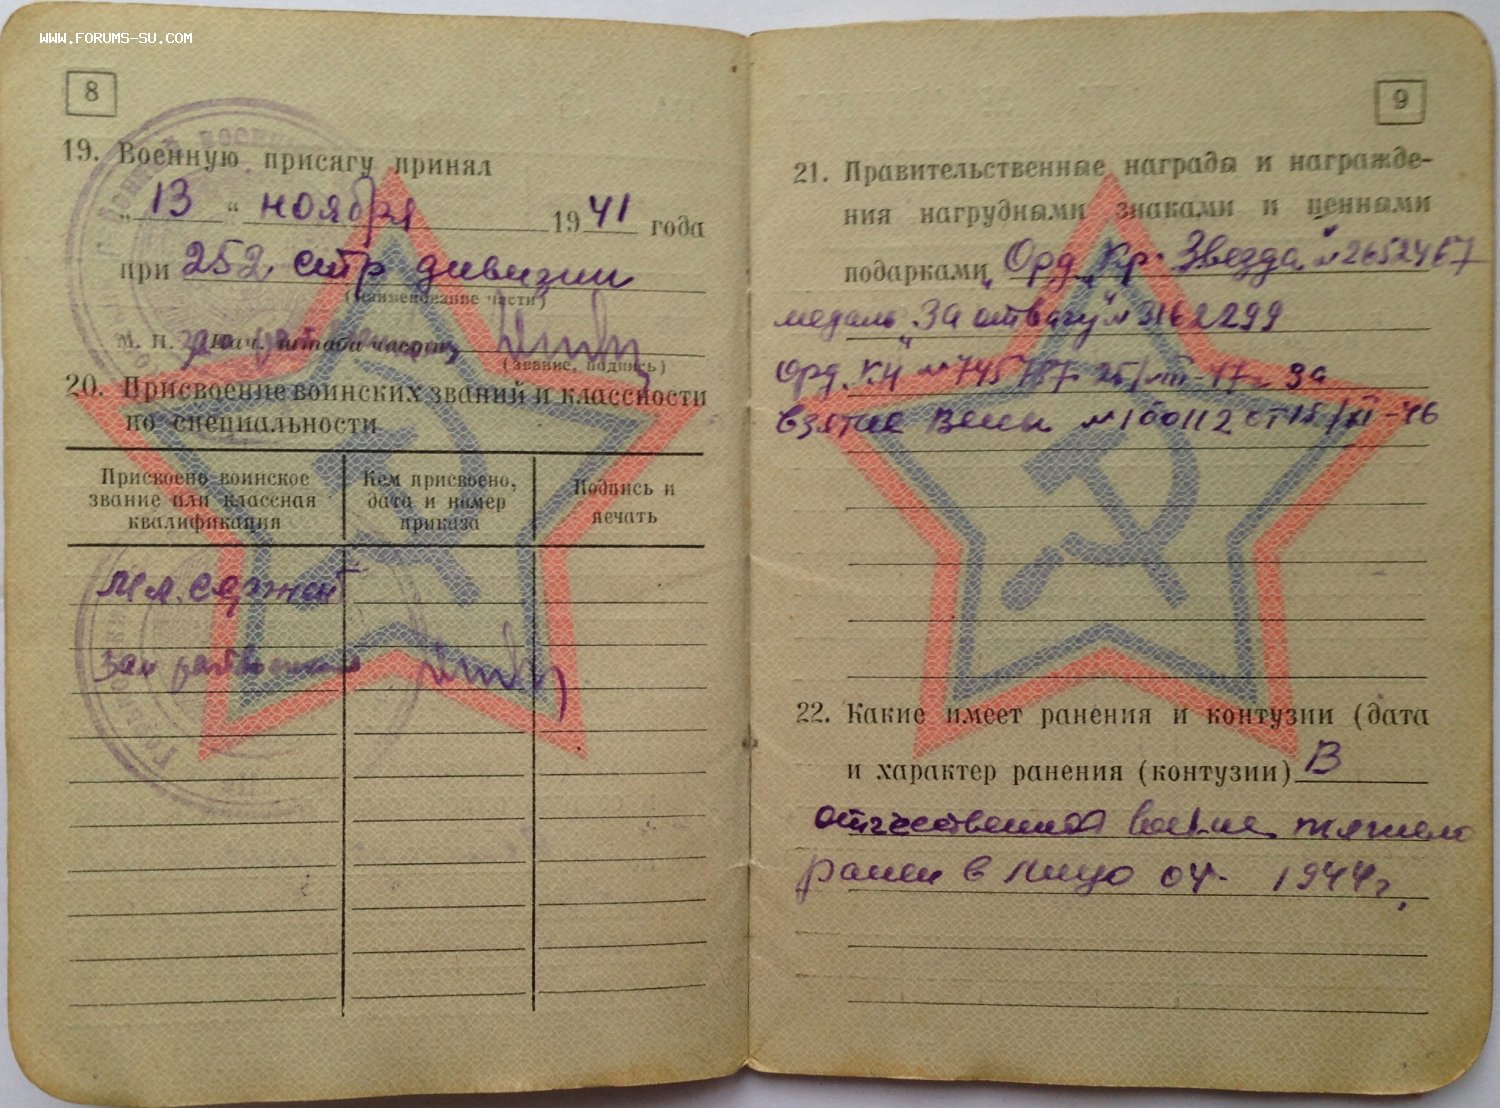 WWW.FORUMS-SU.COM
8
19. Военную присягу принял
„13“ ноября 1941 года
при 252 стр дивизии
(наименование части)
М. П. Нач. штаба части
(звание, подпись)
20. Присвоение воинских званий и классности
по специальности
Присвоено воинское звание или классная квалификация
Кем присвоено, дата и номер приказа
Подпись и печать
Мл. сержант
9
21. Правительственные награды и награжде-
ния нагрудными знаками и ценными
подарками Орд „Кр. Звезда“ №2652467
медаль „За отвагу“ №3162299
Орд. „КЧ“ За
взятие Вены №
22. Какие имеет ранения и контузии (дата
и характер ранения (контузии) В
отечественной войне тяжело
ранен в лицо 04. 1944г.